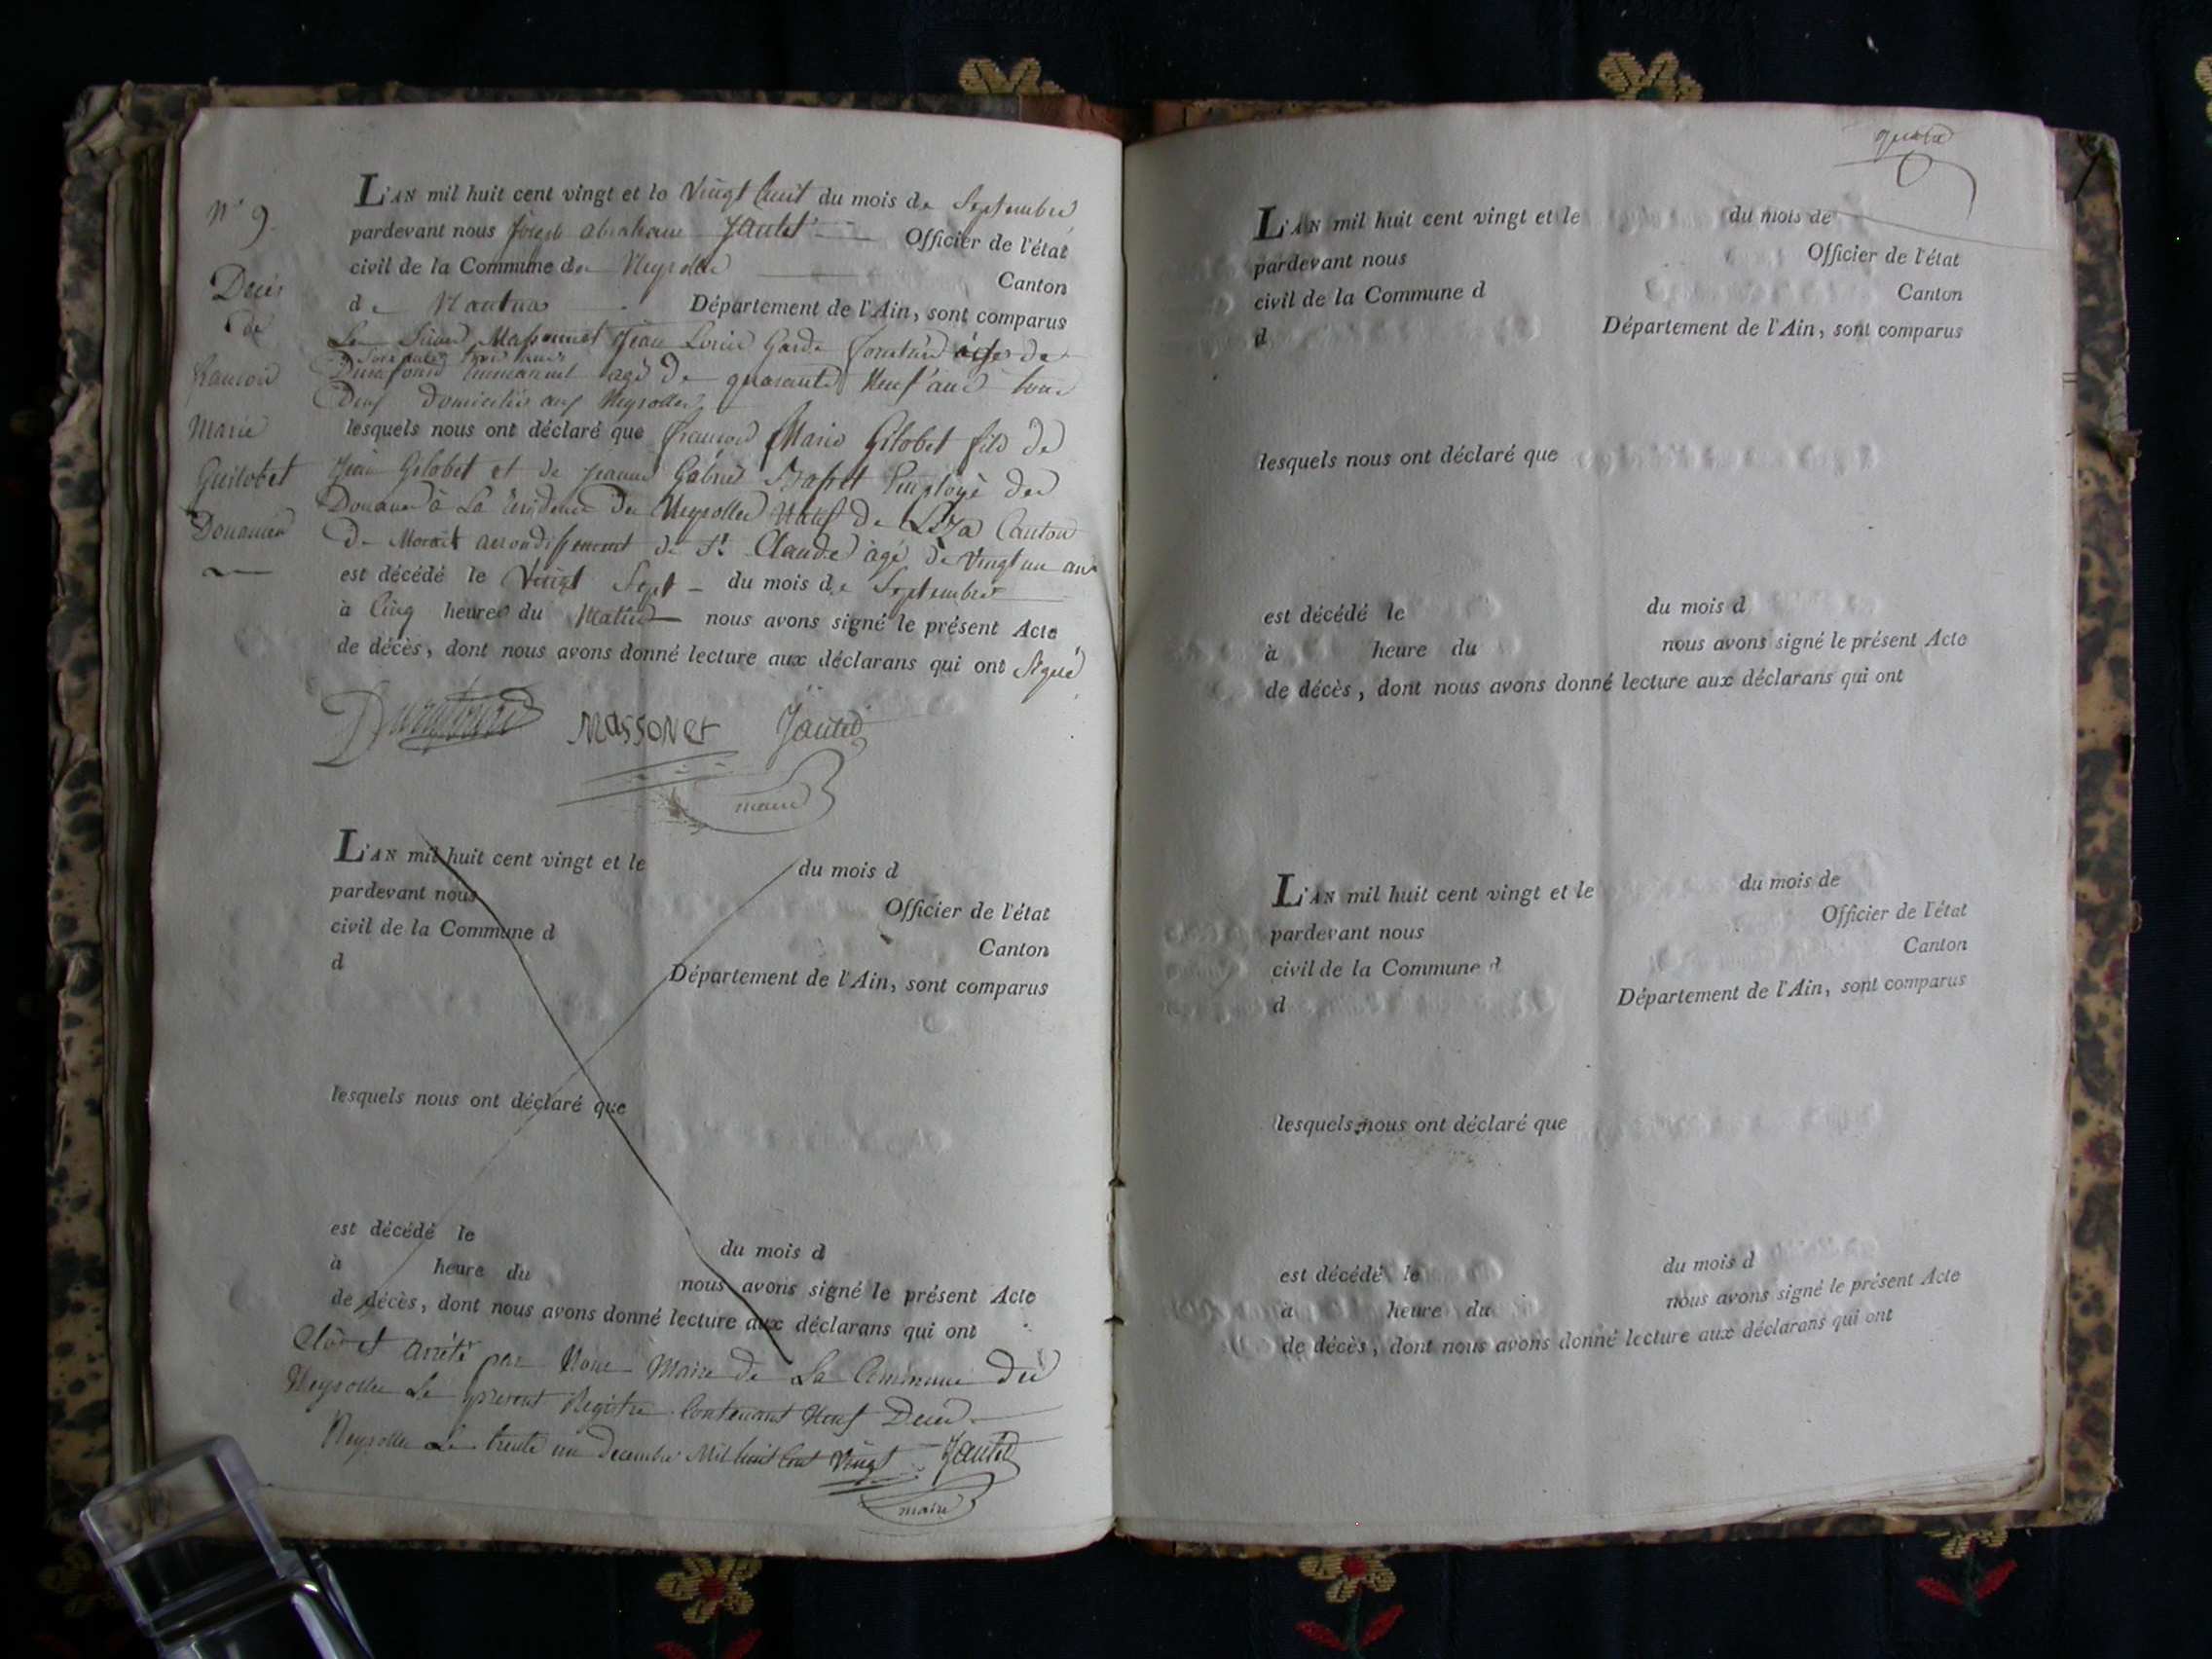 N° 9
Décès
de
françois
Marie
Guilobet
Douanier
L'AN mil huit cent vingt et le Vingt huit du mois de Septembre
pardevant nous Joseph abraham Jantet Officier de l'état
civil de la Commune des Neyrolles Canton
de Nantua Département de l'Ain, sont comparus
Les Sieurs Massonnet Jean Louis Garde forestier âgé de
Soixante trois ans
Durafourd Emmanuel agé de quarante Neuf ans tous
Deux domiciliés aux Neyrolles
lesquels nous ont déclaré que françois Marie Gilobet fils de
Jean Gilobet et de Jeanne Gabriel Employé des
Douanes à La résidence des Neyrolles Natif de Canton
de arrondissement de St Claude âgé de Vingt un ans
est décédé le Vingt Sept du mois de Septembre
à Cinq heures du Matin nous avons signé le présent Acte
de décès, dont nous avons donné lecture aux déclarans qui ont Signé
Durafourd Massonet Jantet
maire
L'AN mil huit cent vingt et le du mois d
pardevant nous Officier de l'état
civil de la Commune d Canton
d Département de l'Ain, sont comparus
lesquels nous ont déclaré que
est décédé le du mois d
à heure du nous avons signé le présent Acte
de décès, dont nous avons donné lecture aux déclarans qui ont
Clos et arrêté par Nous Maire de La Commune des
Neyrolles Le présent Registre Contenant Neuf Décès
Neyrolles Le trente un decembre Mil huit Cent Vingt Jantet
maire
L'AN mil huit cent vingt et le du mois de
pardevant nous Officier de l'état
civil de la Commune d Canton
d Département de l'Ain, sont comparus
lesquels nous ont déclaré que
est décédé le du mois d
à heure du nous avons signé le présent Acte
de décès, dont nous avons donné lecture aux déclarans qui ont
L'AN mil huit cent vingt et le du mois de
pardevant nous Officier de l'état
civil de la Commune d Canton
d Département de l'Ain, sont comparus
lesquels nous ont déclaré que
est décédé le du mois d
à heure du nous avons signé le présent Acte
de décès, dont nous avons donné lecture aux déclarans qui ont